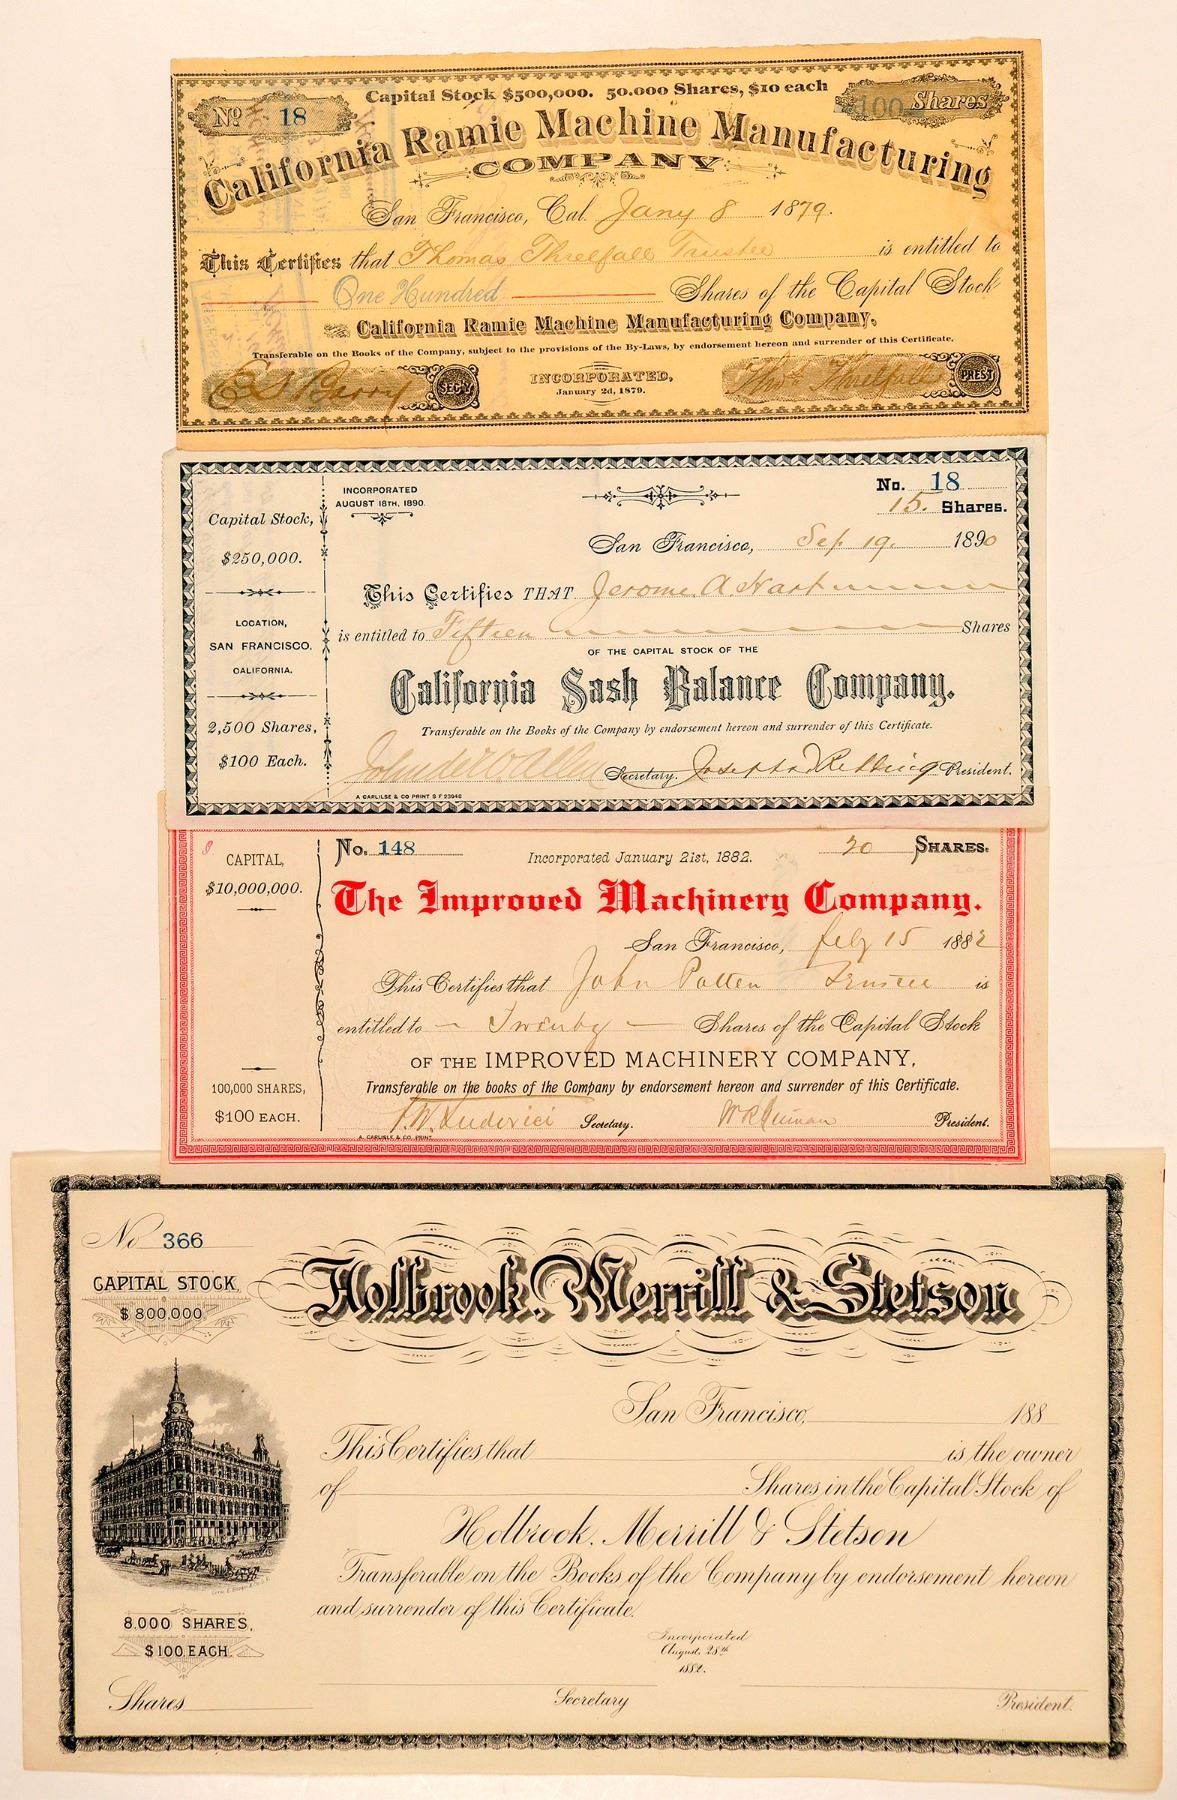 Capital Stock $500,000. 50.000 Shares, $10 each
No 18
100 Shares
California Ramie Machine Manufacturing
COMPANY
San Francisco, Cal. Jany 8 1879.
This Certifies that Thomas Threlfall Trustee is entitled to
One Hundred Shares of the Capital Stock
California Ramie Machine Manufacturing Company.
Transferable on the Books of the Company, subject to the provisions of the By-Laws, by endorsement hereon and surrender of this Certificate.
Barry SECY
INCORPORATED,
January 2d, 1879.
Thos Threlfall PREST
INCORPORATED
AUGUST 18TH, 1890.
No. 18
15. Shares.
Capital Stock,
$250,000.
LOCATION,
SAN FRANCISCO,
CALIFORNIA.
2,500 Shares,
$100 Each.
San Francisco, Sep 19. 1890
This Certifies THAT Jerome A. Hart
is entitled to Fifteen Shares
OF THE CAPITAL STOCK OF THE
California Sash Balance Company.
Transferable on the Books of the Company by endorsement hereon and surrender of this Certificate.
Secretary. Joseph President.
A CARLILSE & CO PRINT S F 23948
CAPITAL,
$10,000,000.
100,000 SHARES,
$100 EACH.
No. 148
Incorporated January 21st, 1882.
20 SHARES.
The Improved Machinery Company.
San Francisco, Feby 15 1882
This Certifies that John Patten Trustee is
entitled to Twenty Shares of the Capital Stock
OF THE IMPROVED MACHINERY COMPANY,
Transferable on the books of the Company by endorsement hereon and surrender of this Certificate.
Ludovici Secretary. President.
A. CARLISLE & CO. PRINT.
No 366
CAPITAL STOCK,
$800,000.
Holbrook, Merrill & Stetson
San Francisco, 188
This Certifies that is the owner
of Shares in the Capital Stock of
Holbrook, Merrill & Stetson
Transferable on the Books of the Company by endorsement hereon
and surrender of this Certificate.
8,000 SHARES,
$100 EACH.
Incorporated
August, 28th
1882.
Shares Secretary President.